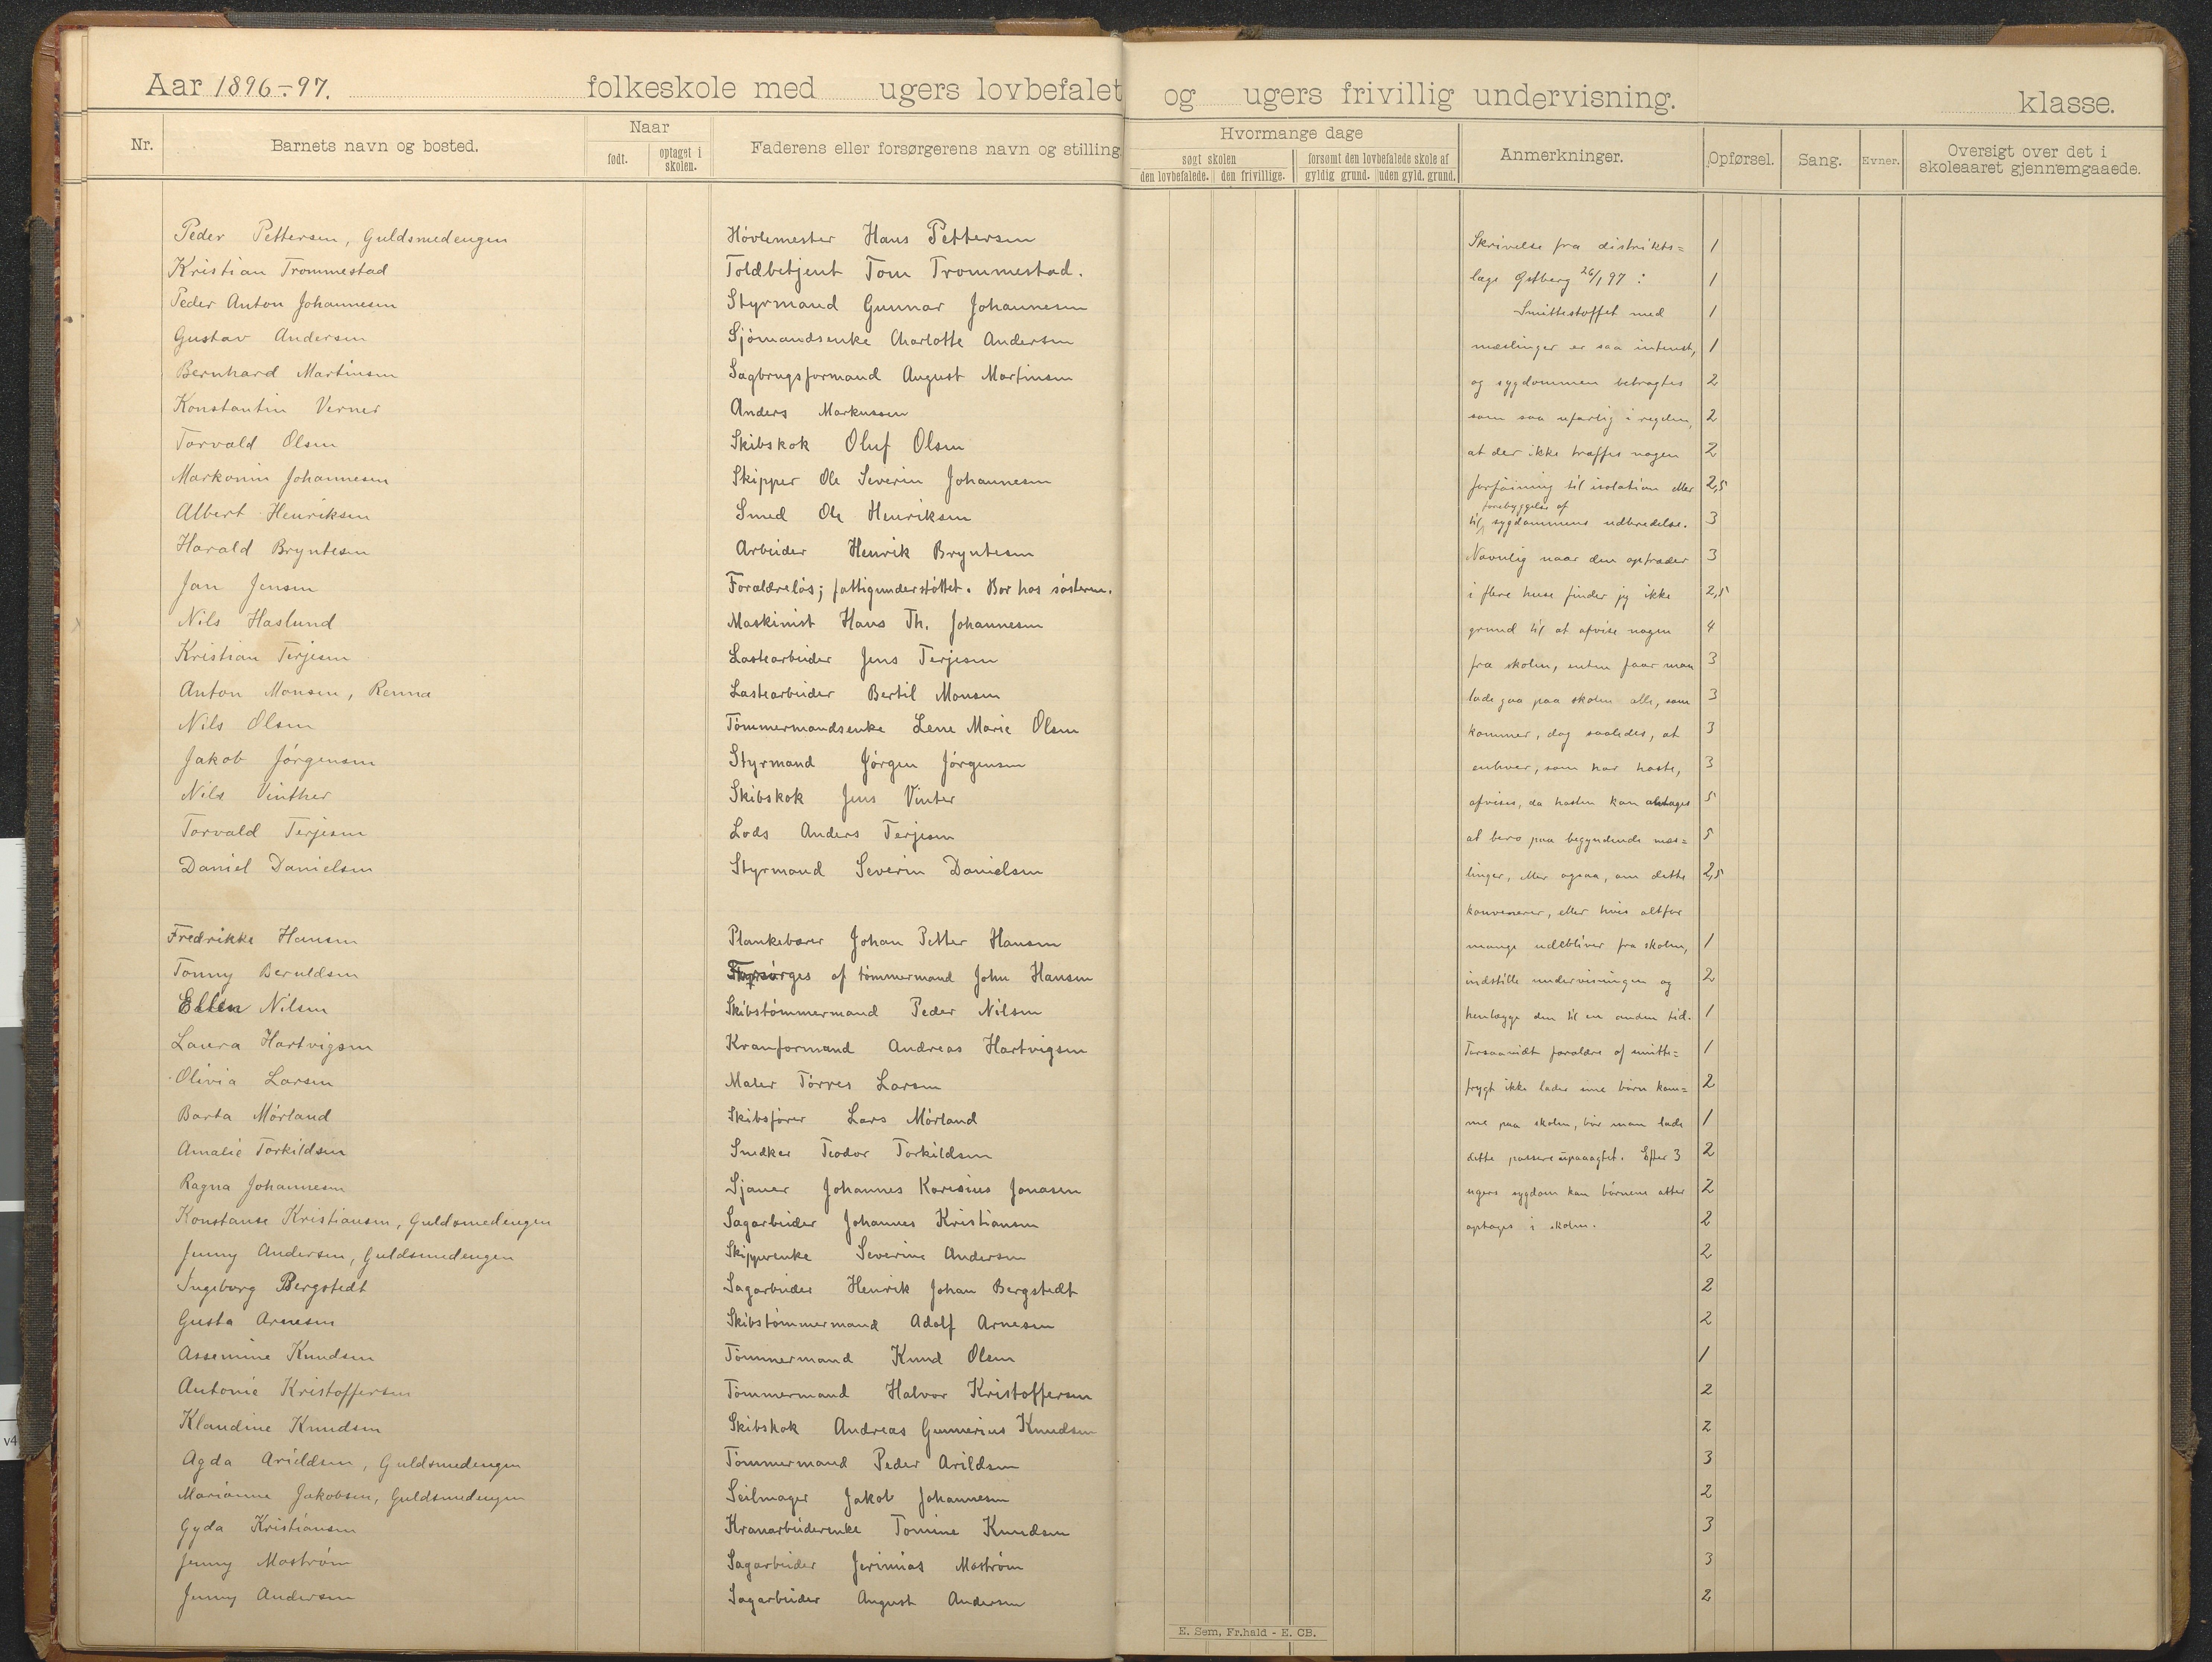 Aar 1896-97. folkeskole med ugers lovbefalet og ugers frivillig undervisning. klasse.
Nr. Barnets navn og bosted. Naar født. optaget i skolen. Faderens eller forsørgerens navn og stilling Hvormange dage søgt skolen den lovbefalede. den frivillige. forsømt den lovbefalede skole af gyldig grund. uden gyld. grund. Anmerkninger. Opførsel. Sang. Evner. Oversigt over det i skoleaaret gjennemgaaede.
Peder Pettersen, Guldsmedengen Høvlemester Hans Pettersen Skrivelse fra distrikts= 1
Kristian Trommestad Toldbetjent Tom Trommestad. læge Østberg 26/1 97: 1
Peder Anton Johannesen Styrmand Gunnar Johannesen Smittestoffet med 1
Gustav Andersen Sjømandsenke Charlotte Andersen mæslinger er saa intenst, 1
Bernhard Martinsen Sagbrugsformand August Martinsen og sygdommen betragtes 2
Konstantin Verner Anders Markussen som saa ufarlig i regelen, 2
Torvald Olsen Skibskok Oluf Olsen at der ikke træffes nogen 2
Markonin Johannesen Skipper Ole Severin Johannesen forføining til isolation eller 2,5
Albert Henriksen Smed Ole Henriksen til forebyggelse af sygdommens udbredelse. 3
Harald Bryntesen Arbeider Henrik Bryntesen Navnlig naar den optræder 3
Jan Jensen Forældreløs; fattigunderstøttet. Bor hos søsteren. i flere huse finder jeg ikke 2,5
Nils Haslund Maskinist Hans Th. Johannesen grund til at afvise nogen 4
Kristian Terjesen Lastearbeider Jens Terjesen fra skolen, enten faar man 3
Anton Monsen, Renna Lastearbeider Bertil Monsen lade gaa paa skolen alle, som 3
Nils Olsen Tømmermandsenke Lene Marie Olsen kommer, dog saaledes, at 3
Jakob Jørgensen Styrmand Jørgen Jørgensen enhver, som har hoste, 3
Nils Vinther Skibskok Jens Vinter afvises, da hosten kan antages 5
Torvald Terjesen Lods Anders Terjesen at bero paa begyndende mæs= 5
Daniel Danielsen Styrmand Severin Danielsen linger, eller ogsaa, om dette 2,5
konvenerer, eller hvis altfor
Fredrikke Hansen Plankebærer Johan Petter Hansen mange udebliver fra skolen, 1
Tonny Beruldsen Forsørges af tømmermand John Hansen indstille undervisningen og 2
Ellen Nilsen Skibstømmermand Peder Nilsen henlægge den til en anden tid. 1
Laura Hartvigsen Kranformand Andreas Hartvigsen Forsaavidt forældre af smitte= 1
Olivia Larsen Maler Tørres Larsen frygt ikke lader sine børn kom= 2
Barta Mørland Skibsfører Lars Mørland me paa skolen, bør man lade 1
Amalie Torkildsen Snedker Teodor Torkildsen dette passere upaaagtet. Efter 3 2
Ragna Johannesen Sjauer Johannes Karesius Jonasen ugers sygdom kan børnene atter 2
Konstanse Kristiansen, Guldsmedengen Sagarbeider Johannes Kristiansen optages i skolen. 2
Jenny Andersen, Guldsmedengen Skipperenke Severine Andersen 2
Ingeborg Bergstedt Sagarbeider Henrik Johan Bergstedt 2
Gusta Arnesen Skibstømmermand Adolf Arnesen 2
Assemine Knudsen Tømmermand Knud Olsen 1
Antonie Kristoffersen Tømmermand Halvor Kristoffersen 2
Klaudine Knudsen Skibskok Andreas Gunnerius Knudsen 2
Agda Arildsen, Guldsmedengen Tømmermand Peder Arildsen 3
Marianne Jakobsen, Guldsmedengen Seilmager Jakob Johannesen 2
Gyda Kristiansen Kranarbeiderenke Tomine Knudsen 3
Jenny Mostrøm Sagarbeider Jerimias Mostrøm 3
Jenny Andersen Sagarbeider August Andersen 2
E. Sem, Fr.hald - E. CB.
v4